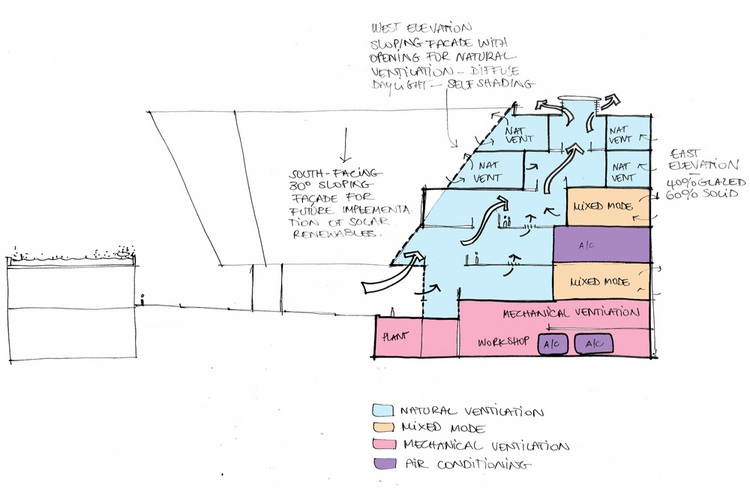 WEST ELEVATION
SLOPING FACADE WITH
OPENING FOR NATURAL
VENTILATION - DIFFUSE
DAYLIGHT - SELF SHADING
SOUTH-FACING
30° SLOPING
FAÇADE FOR
FUTURE IMPLEMENTA
TION OF SOLAR
RENEWABLES.
NAT
VENT
NAT
VENT
NAT
VENT
NAT
VENT
EAST
ELEVATION
-
40% GLAZED
60% SOLID
MIXED MODE
A/C
MIXED MODE
MECHANICAL VENTILATION
PLANT
WORKSHOP
A/C
A/C
NATURAL VENTILATION
MIXED MODE
MECHANICAL VENTILATION
AIR CONDITIONING